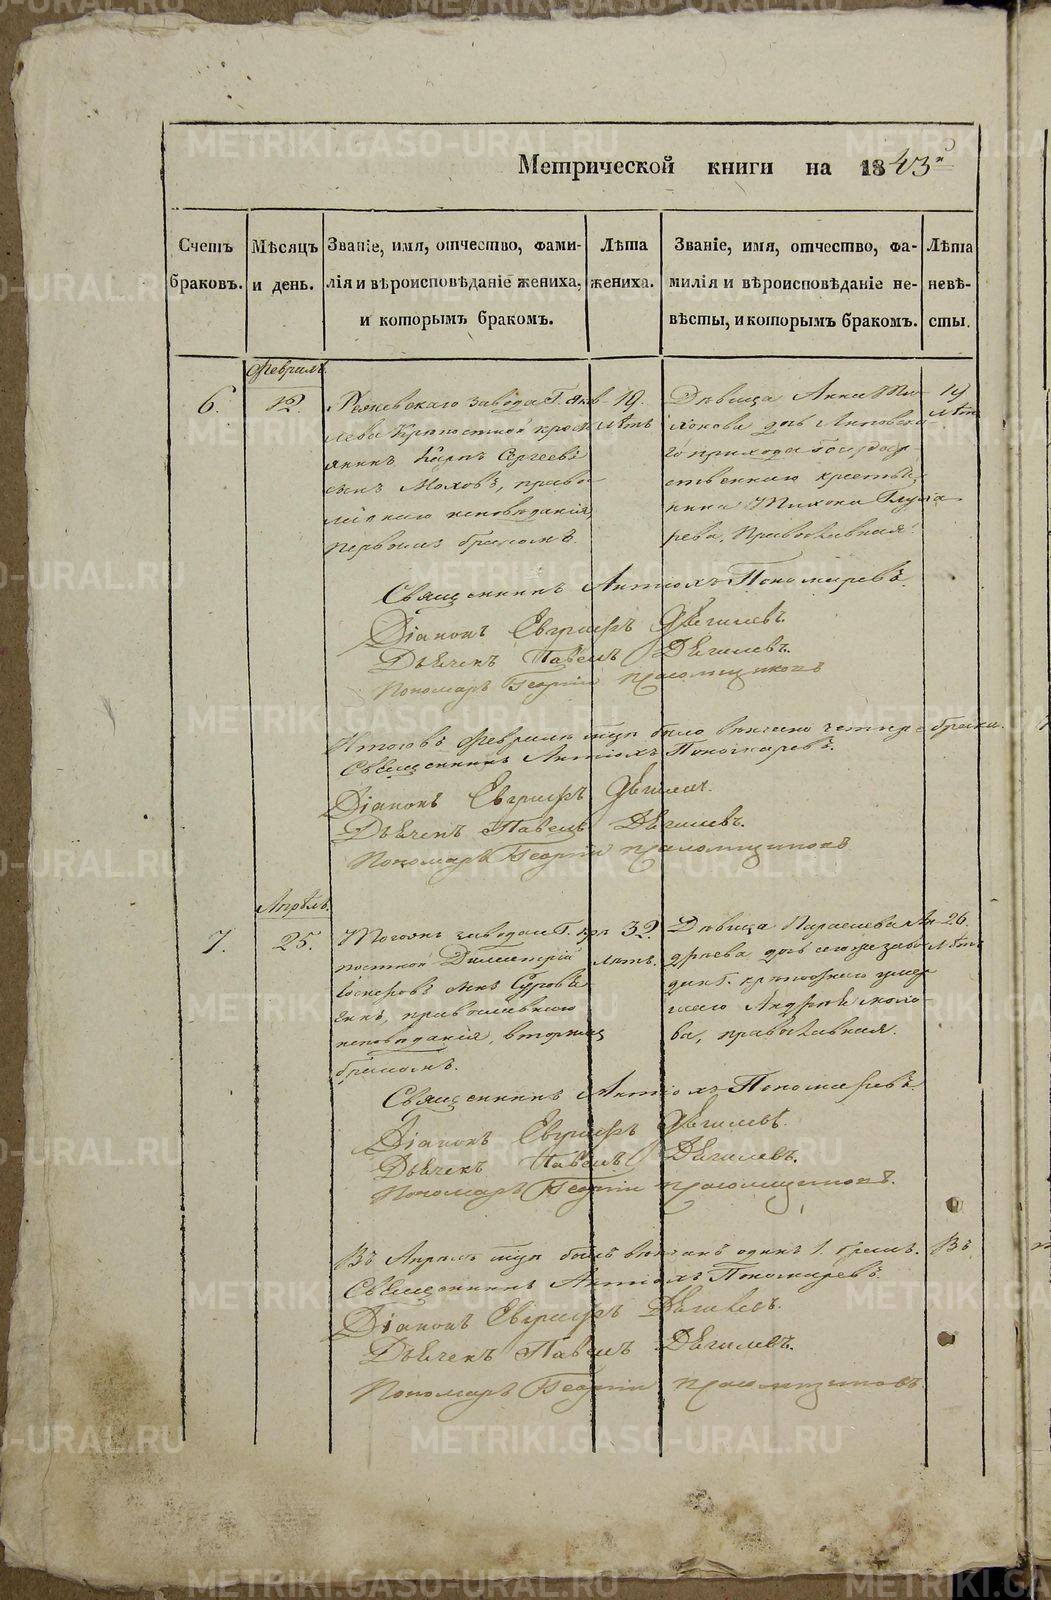 Метрической книги на 1843й
Счетъ браковъ.
Мѣсяцъ и день.
Званіе, имя, отчество, фами-
лія и вѣроисповѣданіе жениха,
и которымъ бракомъ.
Лѣта жениха.
Званіе, имя, отчество, фа-
милія и вѣроисповѣданіе не-
вѣсты, и которымъ бракомъ.
Лѣта невѣ-
сты.
Февраль.
6.
12.
завода Г. Яков
лева Крѣпостной крест
янинъ Карпъ Сергеевъ
сынъ Моховъ, право
славнаго исповѣданія,
первымъ бракомъ.
19.
лѣтъ
Дѣвица Анна Ти-
хонова дочь
го прихода Государ
ственнаго крестья
нина Тихона Глуха
рева, Православная.
19
лѣтъ
Священникъ Антіохъ Пономаревъ.
Діаконъ Евграфъ Дягилевъ.
Дьячекъ Павелъ Дягилевъ.
Пономарь Георгій
Итого въ Февралѣ было вѣнчано четыре брака.
Священникъ Антіохъ Пономаревъ.
Діаконъ Евграфъ Дягилевъ.
Дьячекъ Павелъ Дягилевъ.
Пономарь Георгій
Апрѣль.
7.
25.
завода Г. крѣ
постной Димитрій
сынъ
православнаго
исповѣданія, вторымъ
бракомъ.
32.
лѣтъ.
Дѣвица Параскева Ан-
дреева дочь
умер
шаго Андрея Мохо
ва, православная.
26.
лѣтъ
Священникъ Антіохъ Пономаревъ.
Діаконъ Евграфъ Дягилевъ.
Дьячекъ Павелъ Дягилевъ.
Пономарь Георгій
Въ Апрѣлѣ былъ вѣнчанъ одинъ 1. бракъ. Въ
Священникъ Антіохъ Пономаревъ.
Діаконъ Евграфъ Дягилевъ.
Дьячекъ Павелъ Дягилевъ.
Пономарь Георгій
METRIKI.GASO-URAL.RU